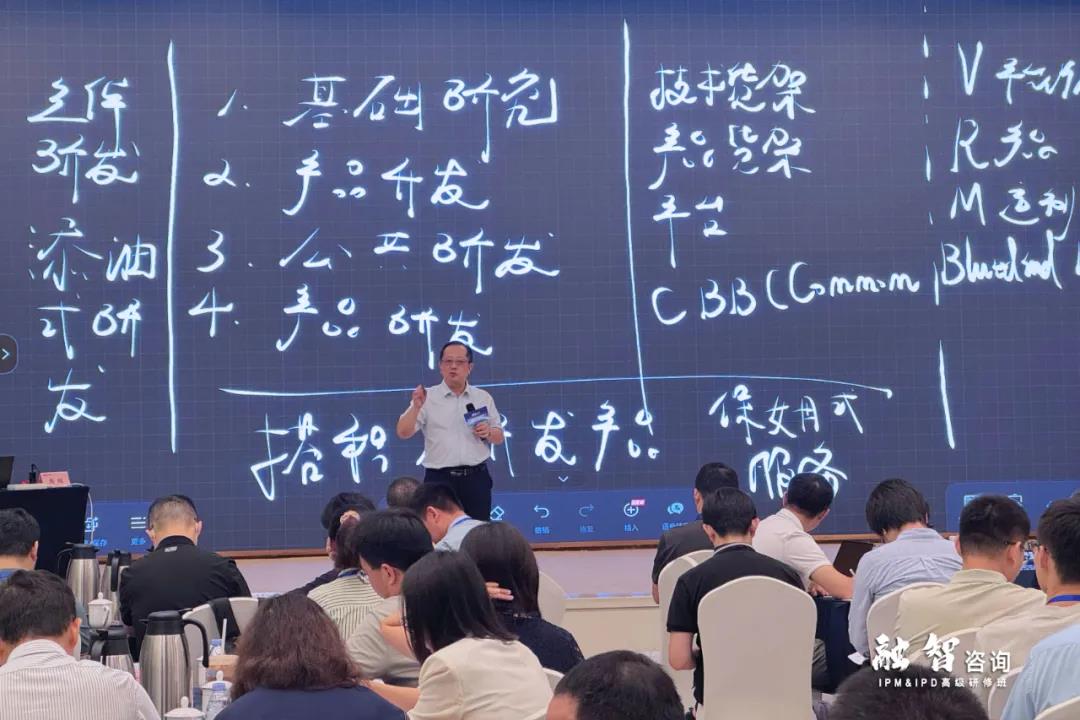 研发
添油
式研
发
1. 基础研究
2. 产品开发
3. 公共研发
4. 产品研发
技术货架
产品货架
平台
CBB (Common
V
R 产品
M
搭积 研发产品
保姆式
服务
更多
撤销
恢复
插入
融智咨询
IPM&IPD高级研修班